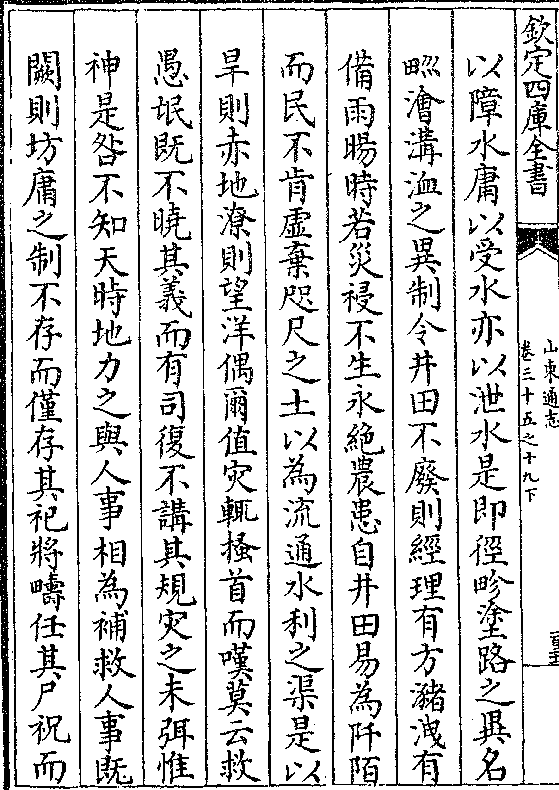 欽定四庫全書
山東通志
卷三十五之十九下
以障水庸以受水亦以泄水是即徑畛塗路之異名
㽪澮溝洫之異制令井田不廢則經理有方瀦洩有
備雨暘時若災祲不生永絶農患自井田易為阡陌
而民不肯虚棄咫尺之土以為流通水利之渠是以
旱則赤地潦則望洋偶爾值灾輒搔首而嘆莫云救
愚氓既不曉其義而有司復不講其規灾之未弭惟
神是咎不知天時地力之與人事相為補救人事既
闕則坊庸之制不存而僅存其祀將疇任其尸祝而